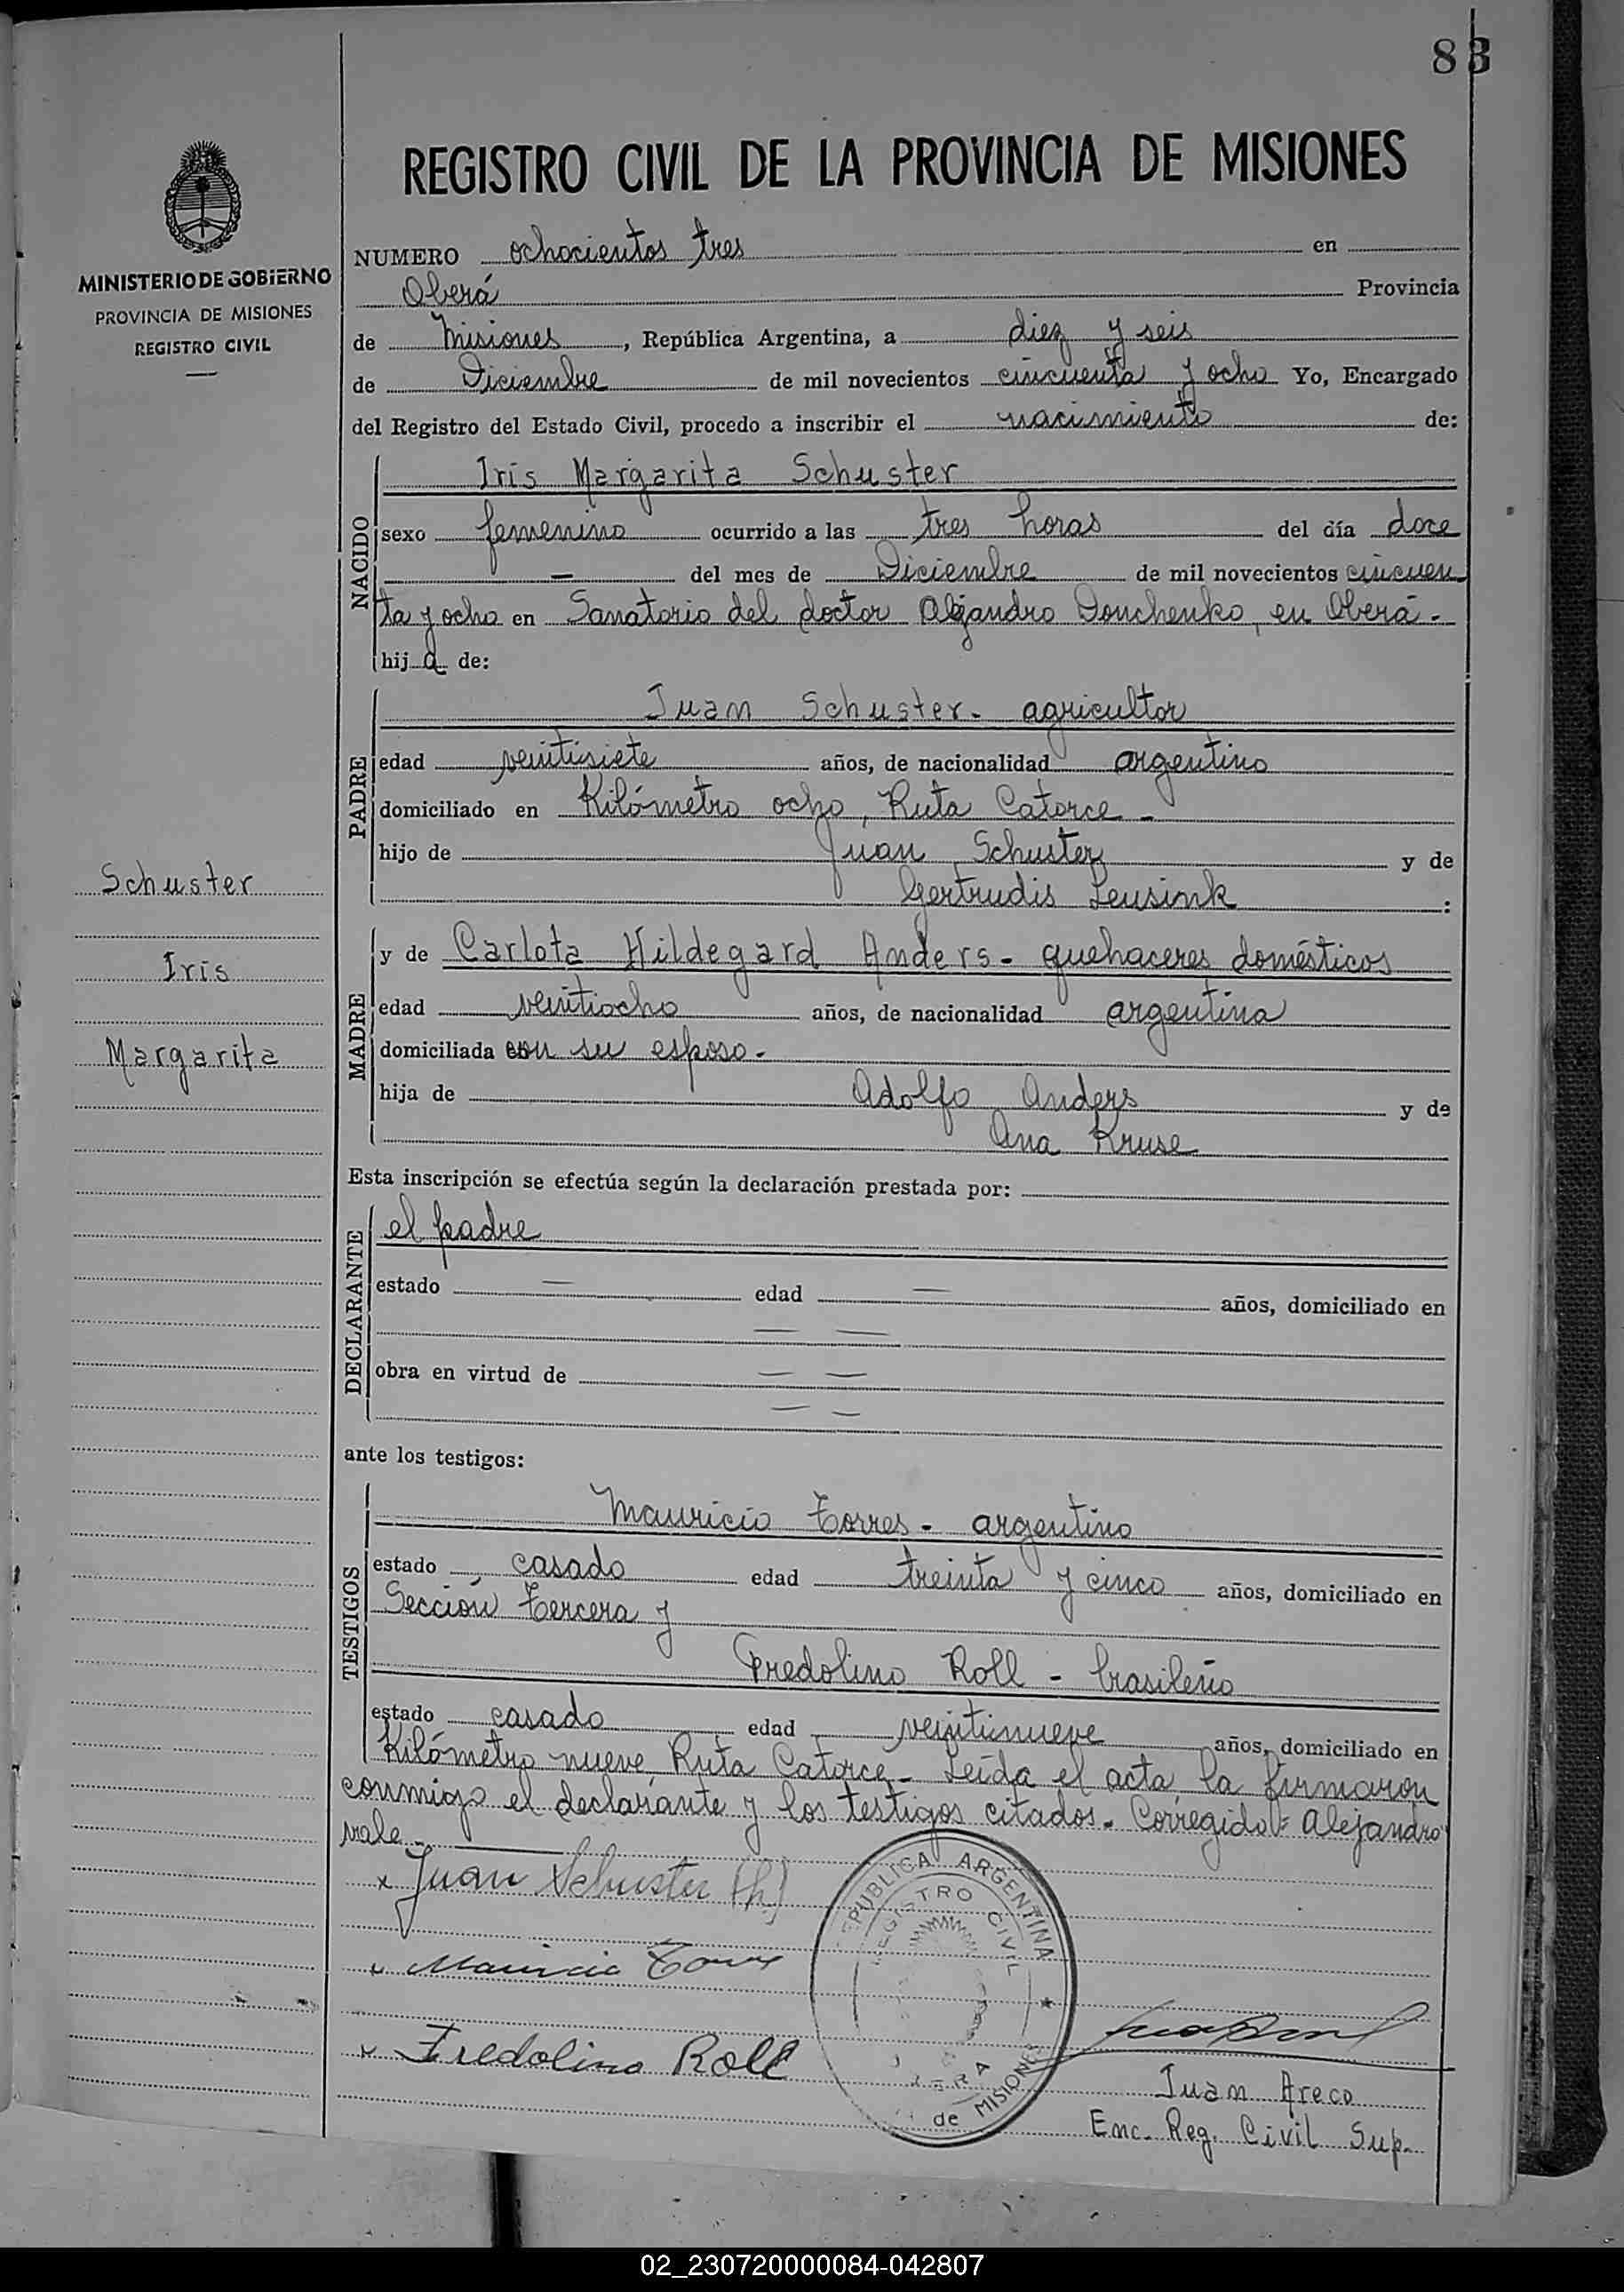 83
REGISTRO CIVIL DE LA PROVINCIA DE MISIONES
MINISTERIO DE GOBIERNO
PROVINCIA DE MISIONES
REGISTRO CIVIL
NUMERO ochocientos tres en
Oberá Provincia
de Misiones, República Argentina, a diez y seis
de Diciembre de mil novecientos cincuenta y ocho Yo, Encargado
del Registro del Estado Civil, procedo a inscribir el nacimiento de:
NACIDO
Iris Margarita Schuster
sexo femenino ocurrido a las tres horas del día doce
— del mes de Diciembre de mil novecientos cincuen
ta y ocho en Sanatorio del doctor Alejandro Donchenko, en Oberá.-
hija de:
PADRE
Juan Schuster- agricultor
edad veintisiete años, de nacionalidad argentino
domiciliado en Kilómetro ocho, Ruta Catorce -
hijo de Juan Schuster y de
Gertrudis Leusink :
MADRE
y de Carlota Hildegard Anders- quehaceres domésticos
edad veintiocho años, de nacionalidad argentina
domiciliada con su esposo.-
hija de Adolfo Anders y de
Ana Kruse
Schuster
Iris
Margarita
Esta inscripción se efectúa según la declaración prestada por:
DECLARANTE
el padre
estado — edad — años, domiciliado en
— —
obra en virtud de — —
— —
ante los testigos:
TESTIGOS
Mauricio Torres- argentino
estado casado edad treinta y cinco años, domiciliado en
Sección Tercera y
Fredolino Roll - brasileño
estado casado edad veintinueve años, domiciliado en
Kilómetro nueve, Ruta Catorce.- Leída el acta la firmaron
conmigo el declarante y los testigos citados.- Corregido: Alejandro
vale.-
x Juan Schuster (h)
x Mauricio Torres
x Fredolino Roll
REPUBLICA ARGENTINA
REGISTRO CIVIL
de MISIONES
Juan Areco
Enc. Reg. Civil Sup.
02_230720000084-042807